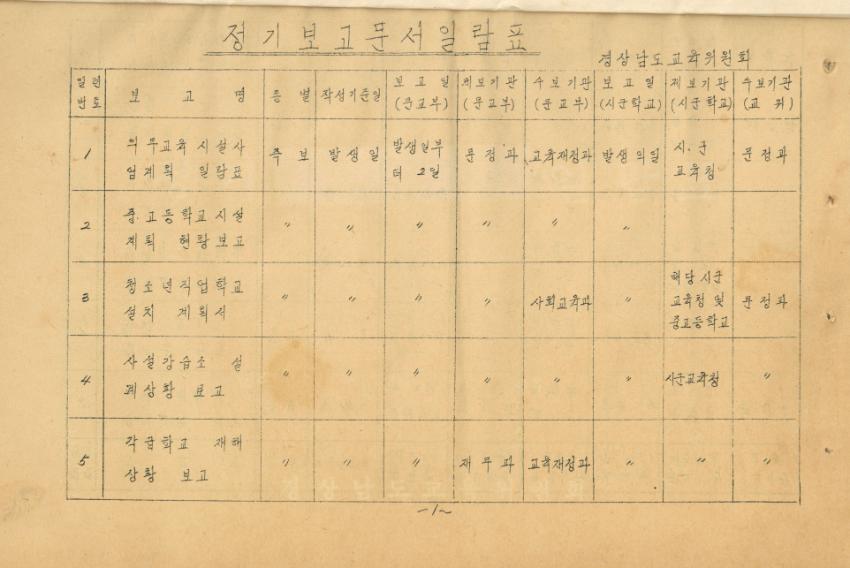 정기보고문서일람표
경상남도교육위원회
일련번호 보고명 종별 작성기준일 보고일(문교부) 제보기관(문교부) 수보기관(문교부) 보고일(시군학교) 제보기관(시군학교) 수보기관(교위)
1 의무교육 시설사업계획 일람표 즉보 발생일 발생일부터 2일 문정과 교육재정과 발생의일 시.군교육청 문정과
2 중.고등학교시설계획 현황보고 〃 〃 〃 〃 〃 〃
3 청소년직업학교설치 계획서 〃 〃 〃 〃 사회교육과 〃 해당시군교육청 및 중고등학교 문정과
4 사설강습소 설계상황 보고 〃 〃 〃 〃 〃 〃 시군교육청 〃
5 각급학교 재해상황 보고 〃 〃 〃 재무과 교육재정과 〃 〃 〃
-1-